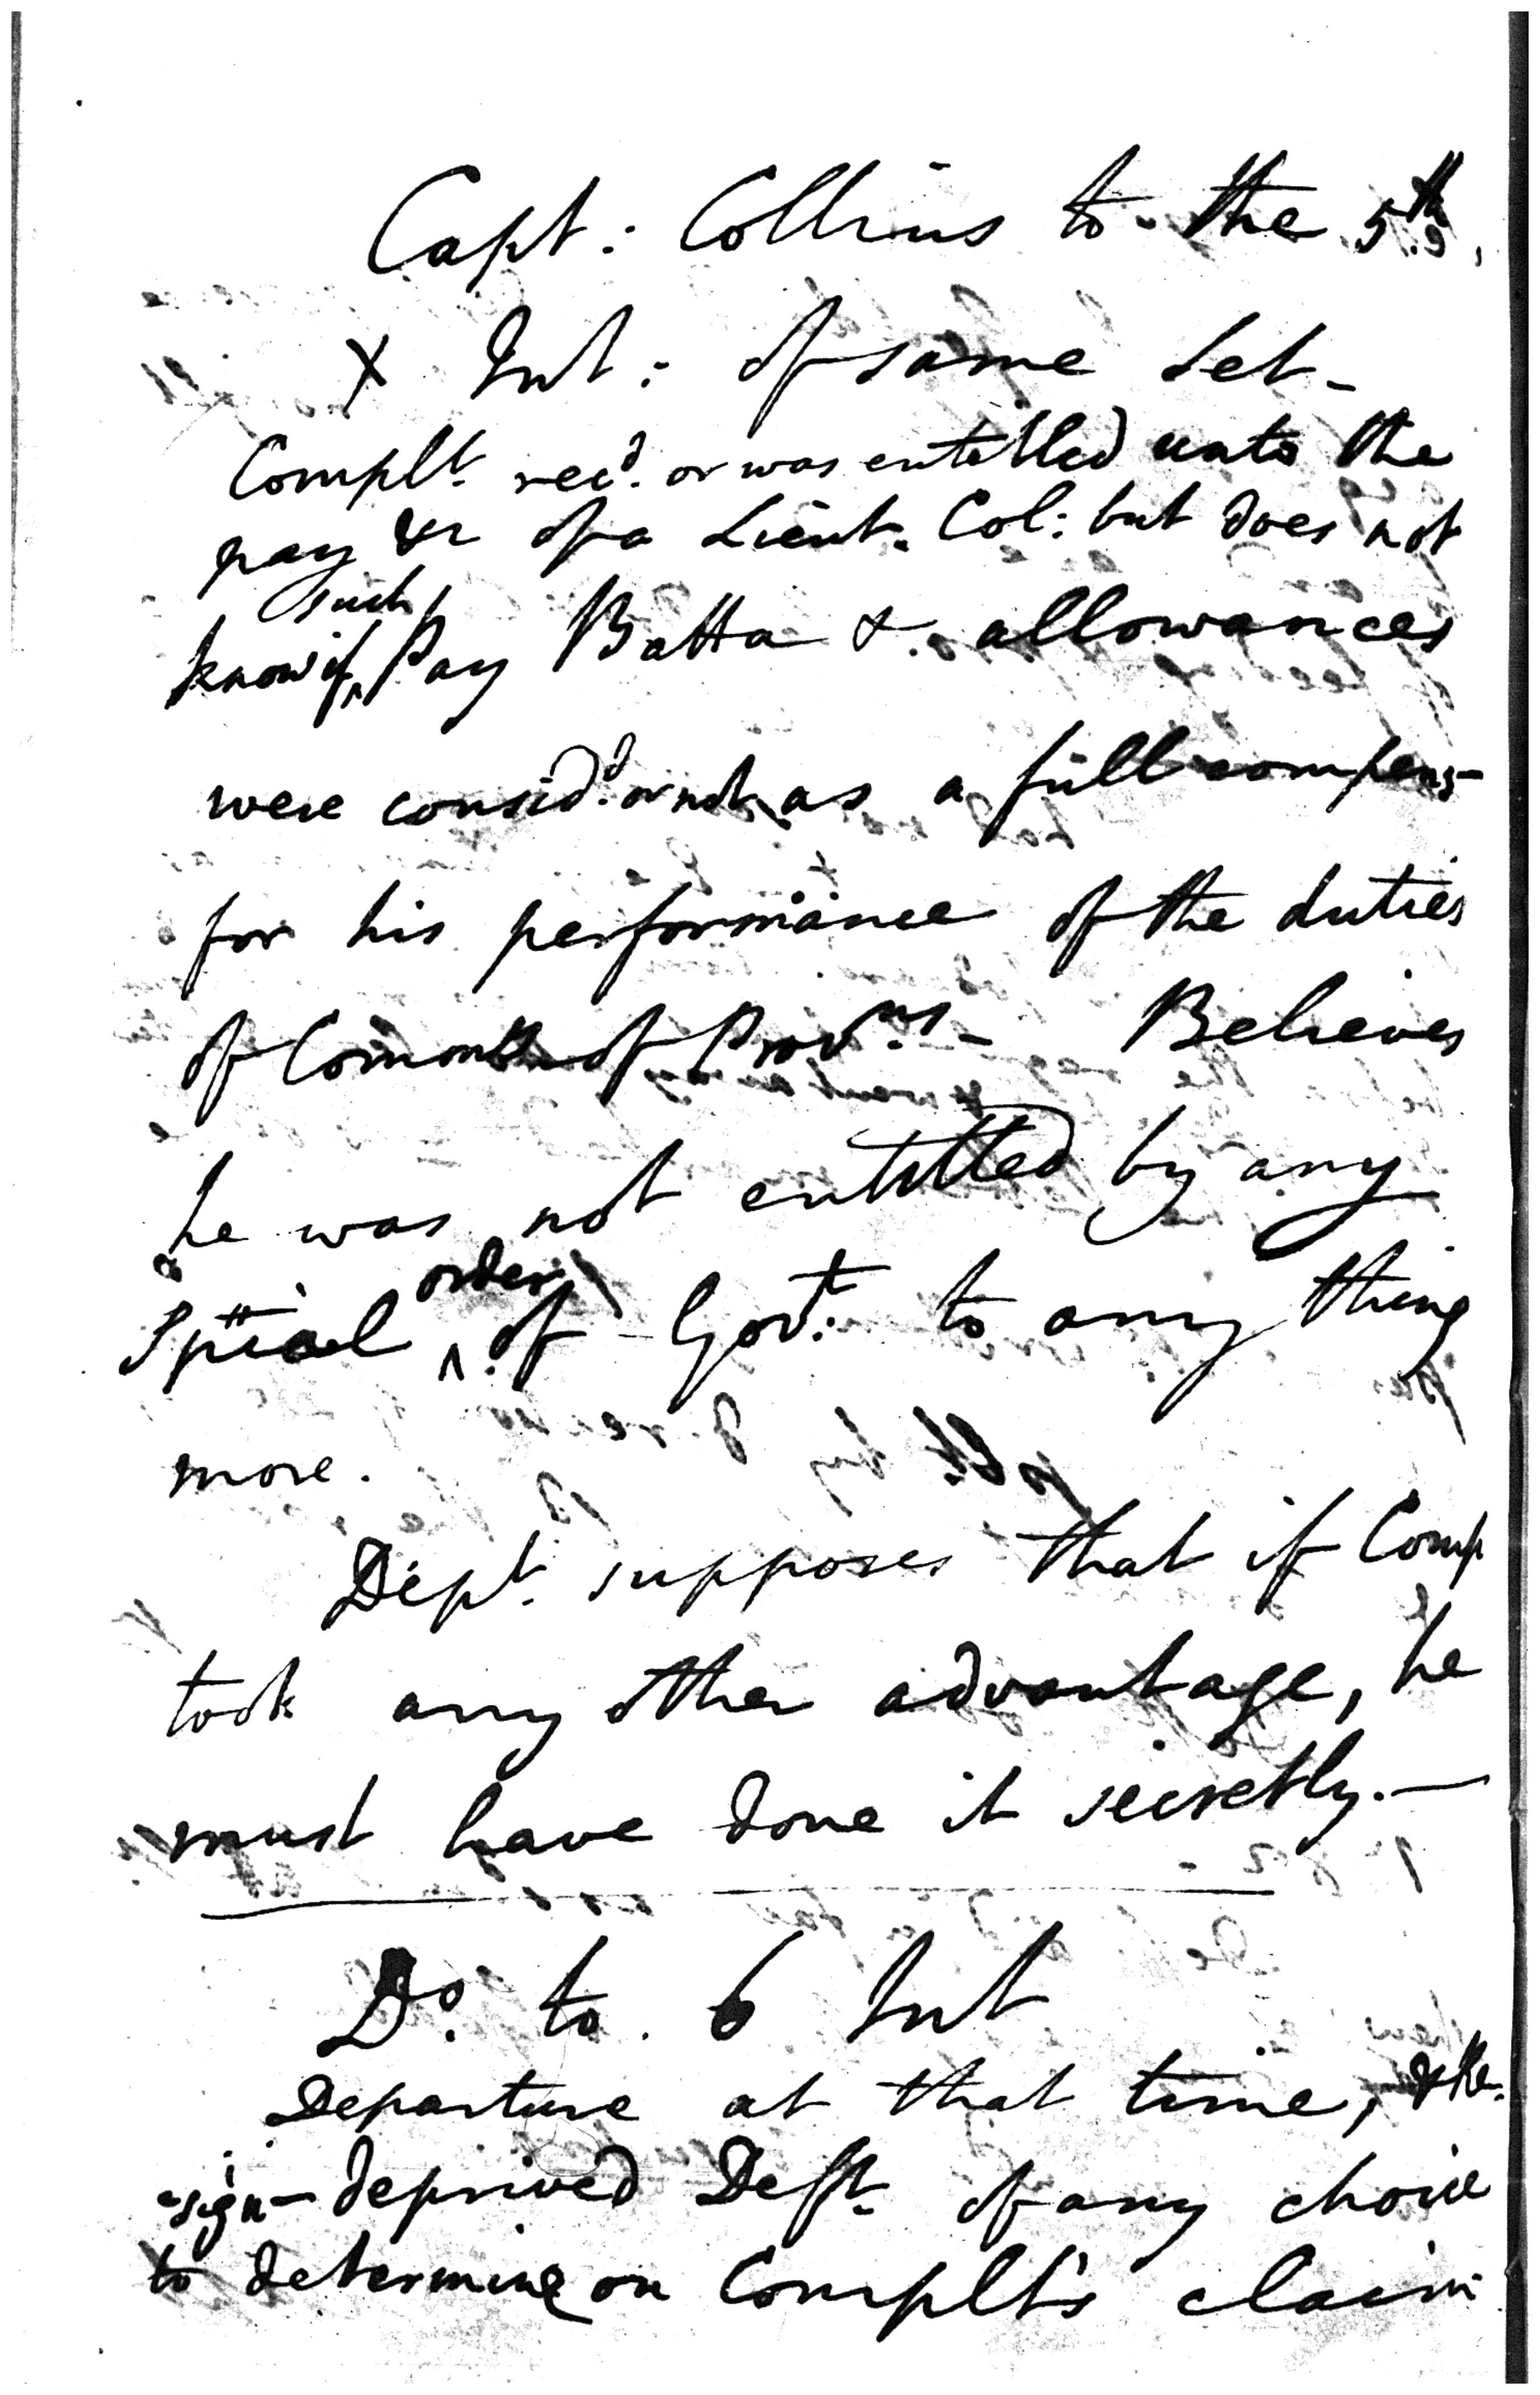 Capt: Collins to the 5th,
X Int: of same Set-
Complt. recd. or was entitled unto the
pay &c of a Lieut. Col: but does not
know if such Pay Batta & allowances
were considd. or not as a full compens-
for his performance of the duties
of Comm of Provns - Believes
he was not entitled by any
Special order of Govt: to any thing
more.
Dept. supposes that if Comp
took any other advantage, he
must have done it secretly.—
Do. to 6 Int
Departure at that time, & Re-
-sign- deprived Deft. of any choice
to determine on Complt's claim